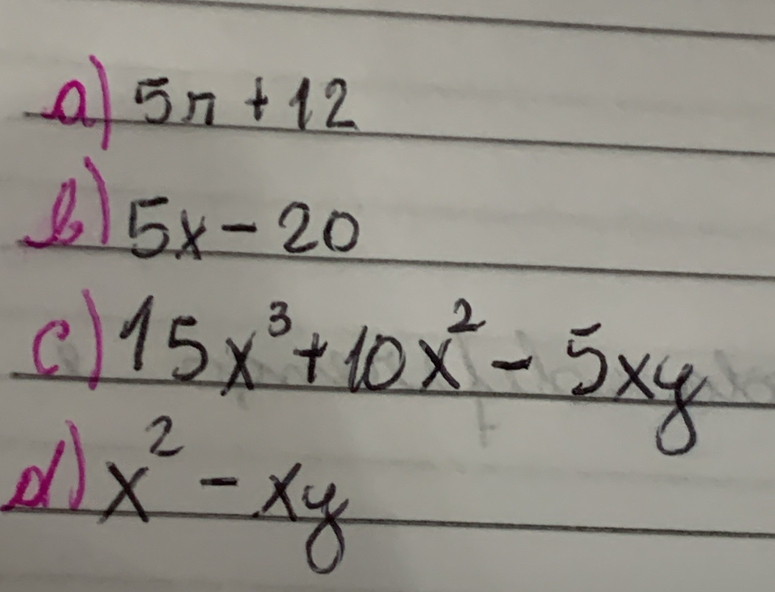 a) 5n + 12
b) 5x - 20
c) 15x³ + 10x² - 5xy
d) x² - xy